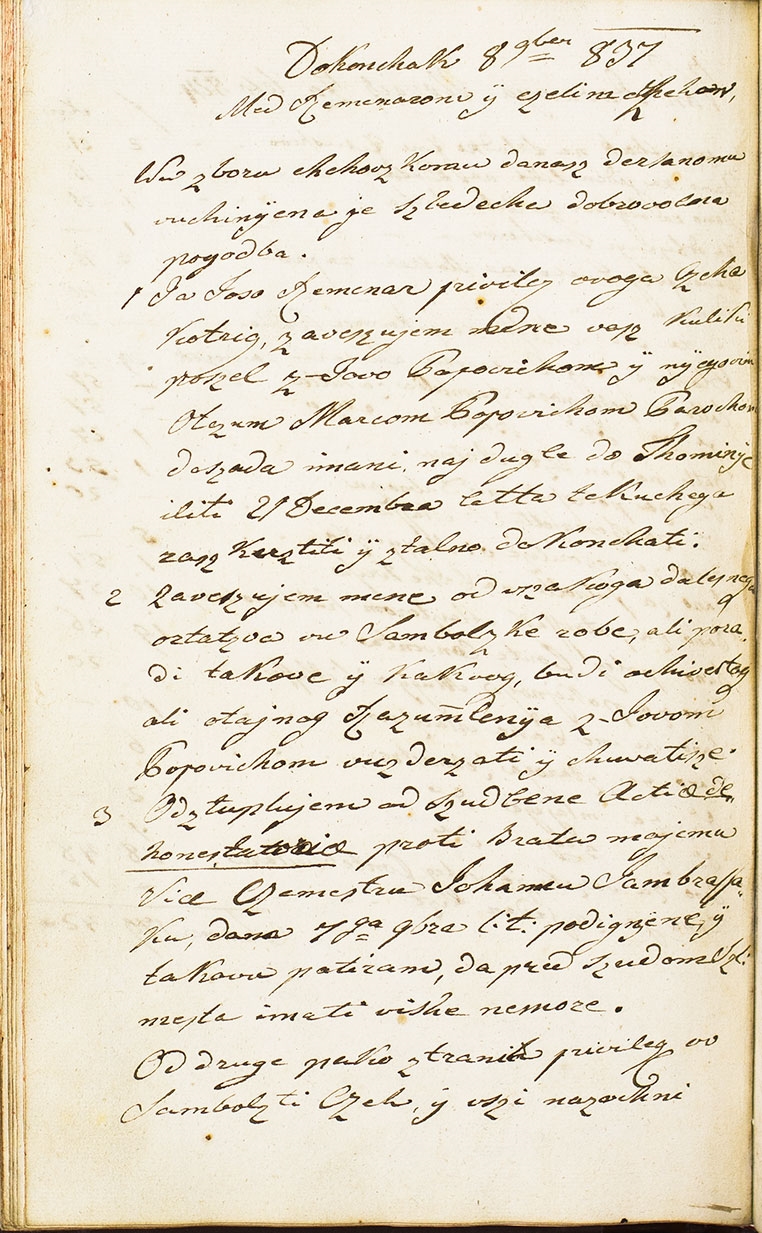 Dokonchak 8 9ber 837
Med Remenarom ÿ czelim Czehom,
Vu zboru chehovzkorau danasz dersanomu
vuchinÿena je szledecha dobrovolna
pogodba.
1 Ja Joso Remenar privileg ovoga Czeha
Kotrig, zaveszujem mene vasz Kuliki
poszel z-Jovo Popovichom ÿ nÿegovim
Otczum Marcom Popovichom Parochom
doszada imani, naj dugle do Thominÿe
iliti 21 Decembra letta tekuchega
razkerztiti ÿ ztalno dokonchati.
2 Zaveszujem mene od vszakoga dalnyega
ortatzva vu Sambolzke robe, ali pora,
di takove ÿ kakvog, budi ochivestog
ali otajnog Razumlenÿa z-Jovom
Popovichom vuzderzati ÿ chuvatisze.
3 Odztupljujem od szudbene Actiæ de
honestatoriæ proti Bratu mojemu
Vice Czemestru Johannu Jambrassa,,
Ku, dana 7ga 9bra l: t: podignÿene, ÿ
takovu potiram, da pred szudom Szl:
mesta imati vishe nemore.
Od druge pako ztranih privileg ov
Sambolzti Czeh, ÿ vszi nazochni